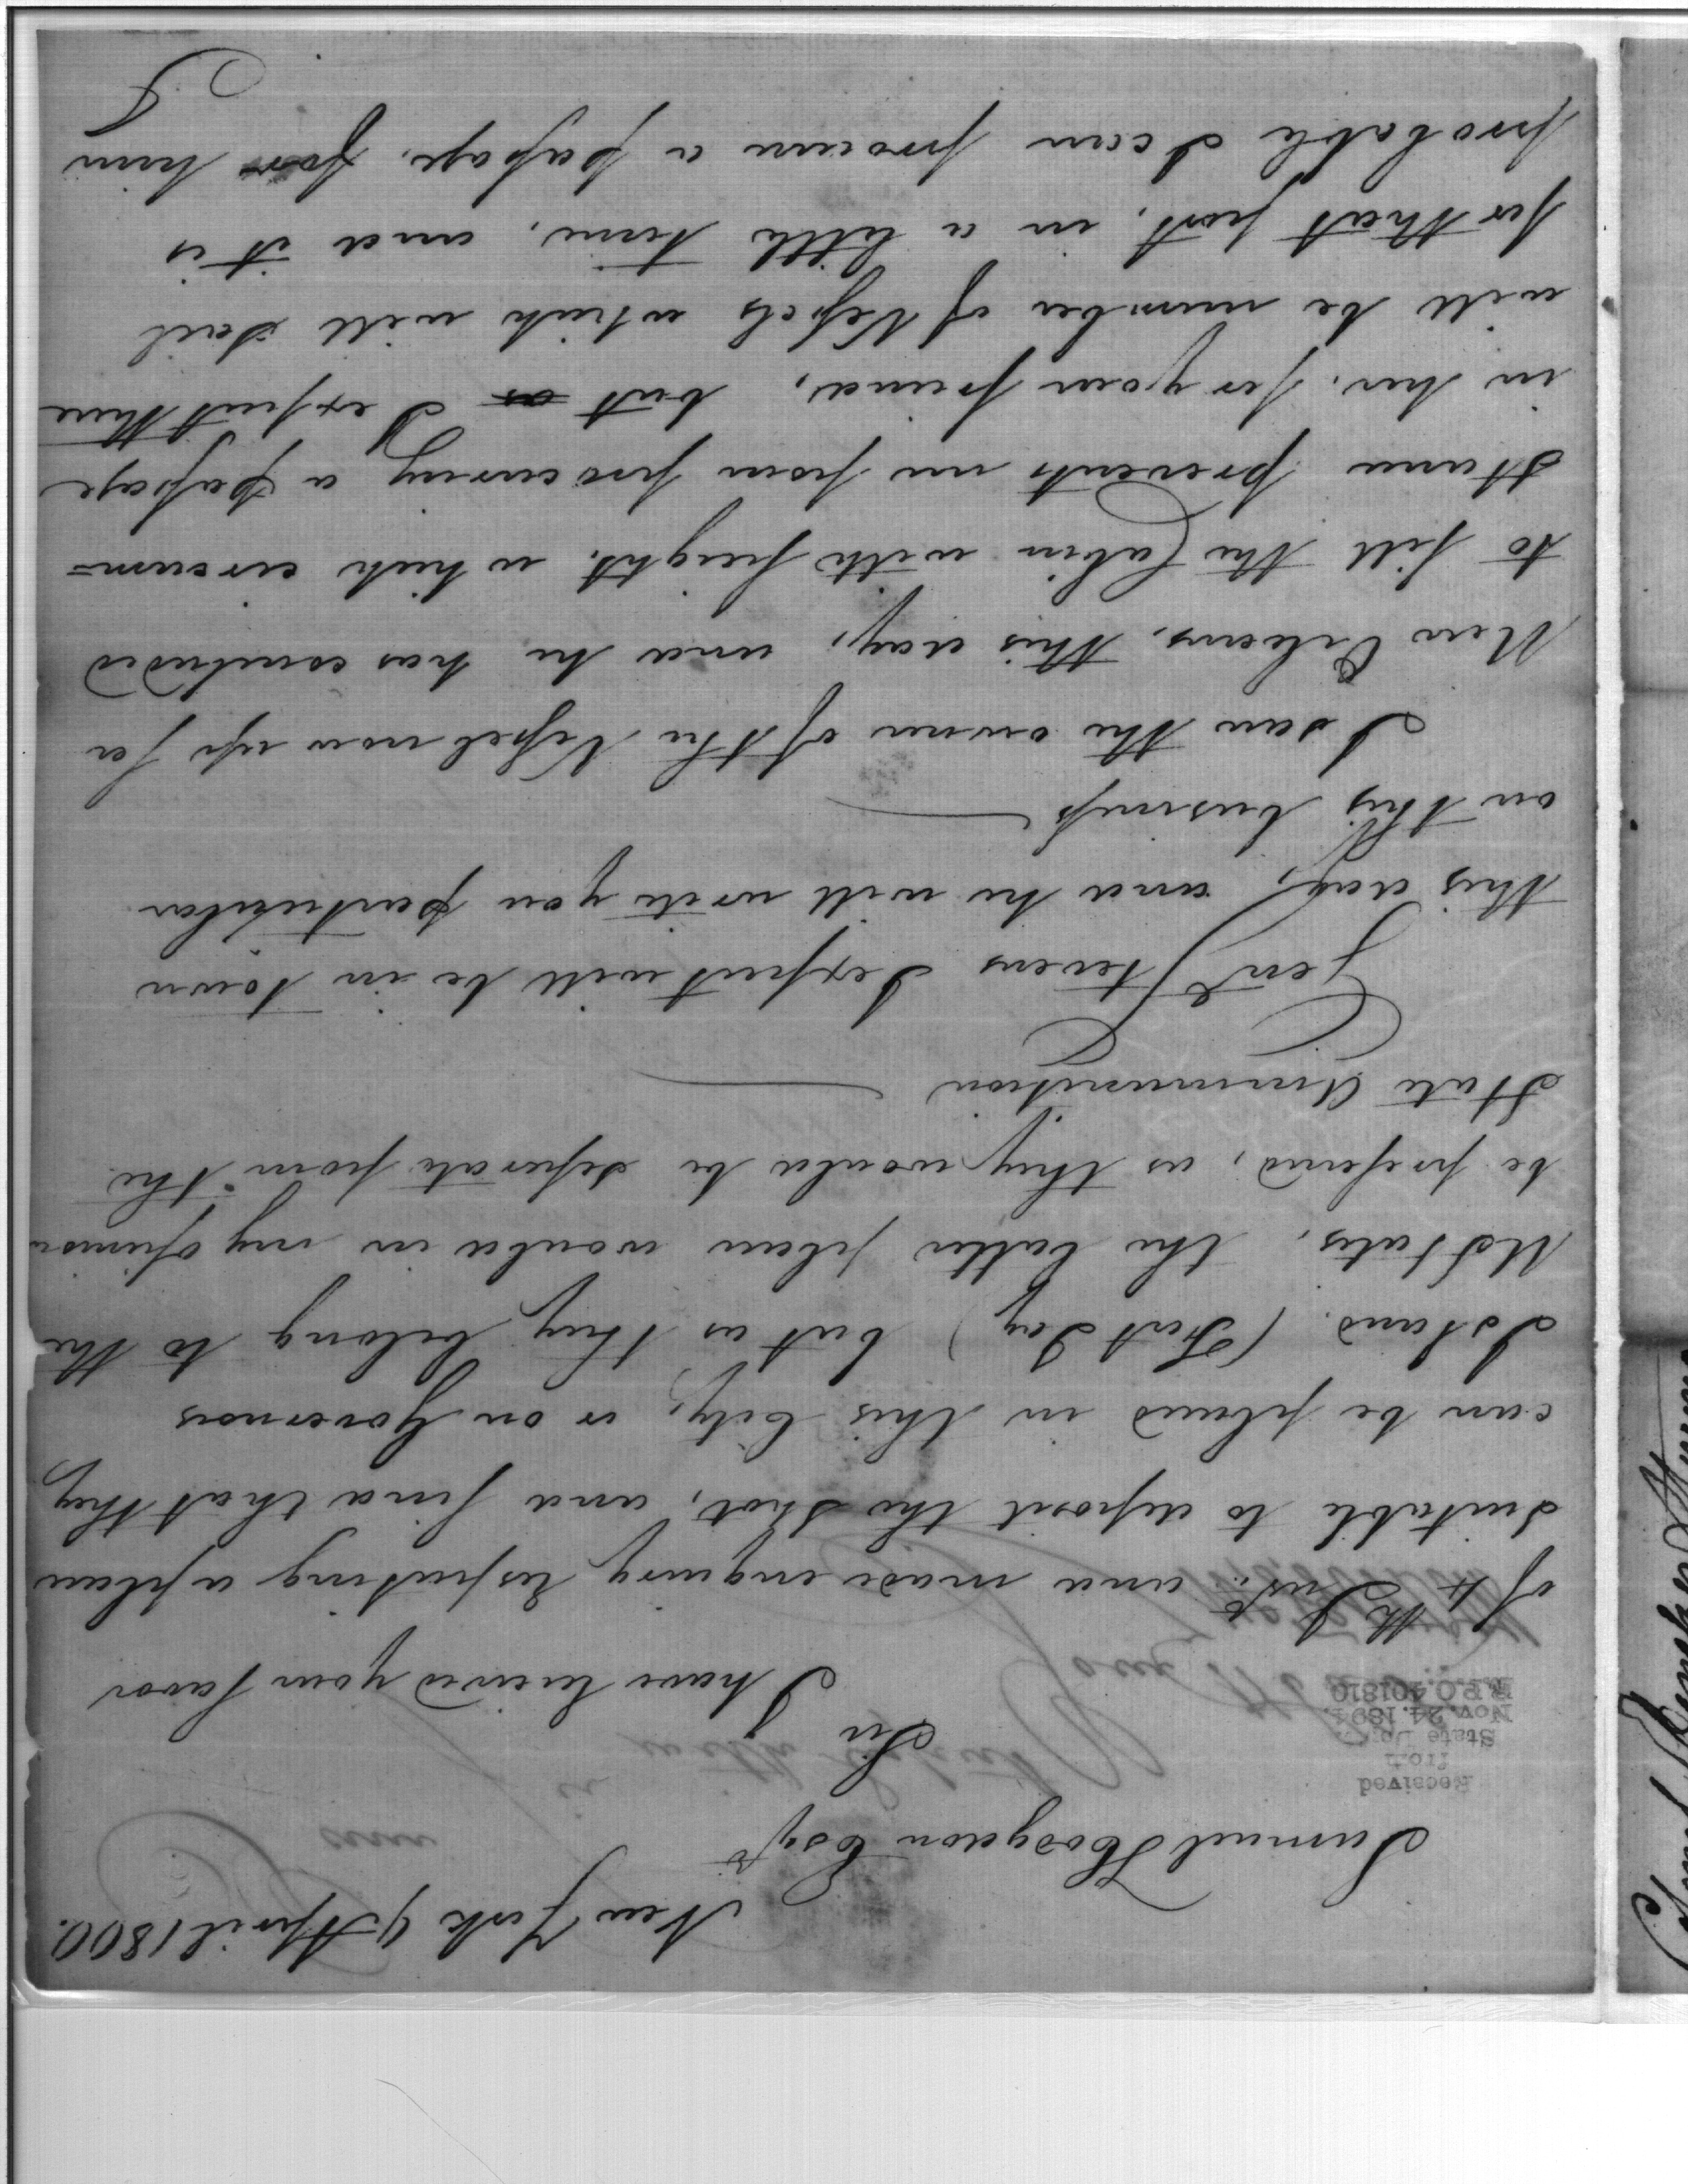 New York 9 April 1800.
Samuel Hodgdon Esqr
Received
from
State Dept.
Nov. 24. 1894.
R.P.O. 401810
Sir
I have received your favor
of 4th Inst. and made enquiry respecting a place
suitable to deposit the shot, and find that they
can be placed in this City, or on Governors
Island (Fort Jay) but as they belong to the
UStates, the latter place would in my opinion
be prefered, as they would be seperate from the
State Ammunition
Genl Stevens I expect will be in town
this day, and he will write you particular
on this business
I saw the owner of the Vessel now up for
New Orleans, this day, and he has concluded
to fill the Cabin with freight, which circum=
stance prevents me from procuring a passage
in her, for your friend, but as I expect there
will be number of Vessels which will sail
for that port, in a little time, and it is
probable I can procure a passage, for him